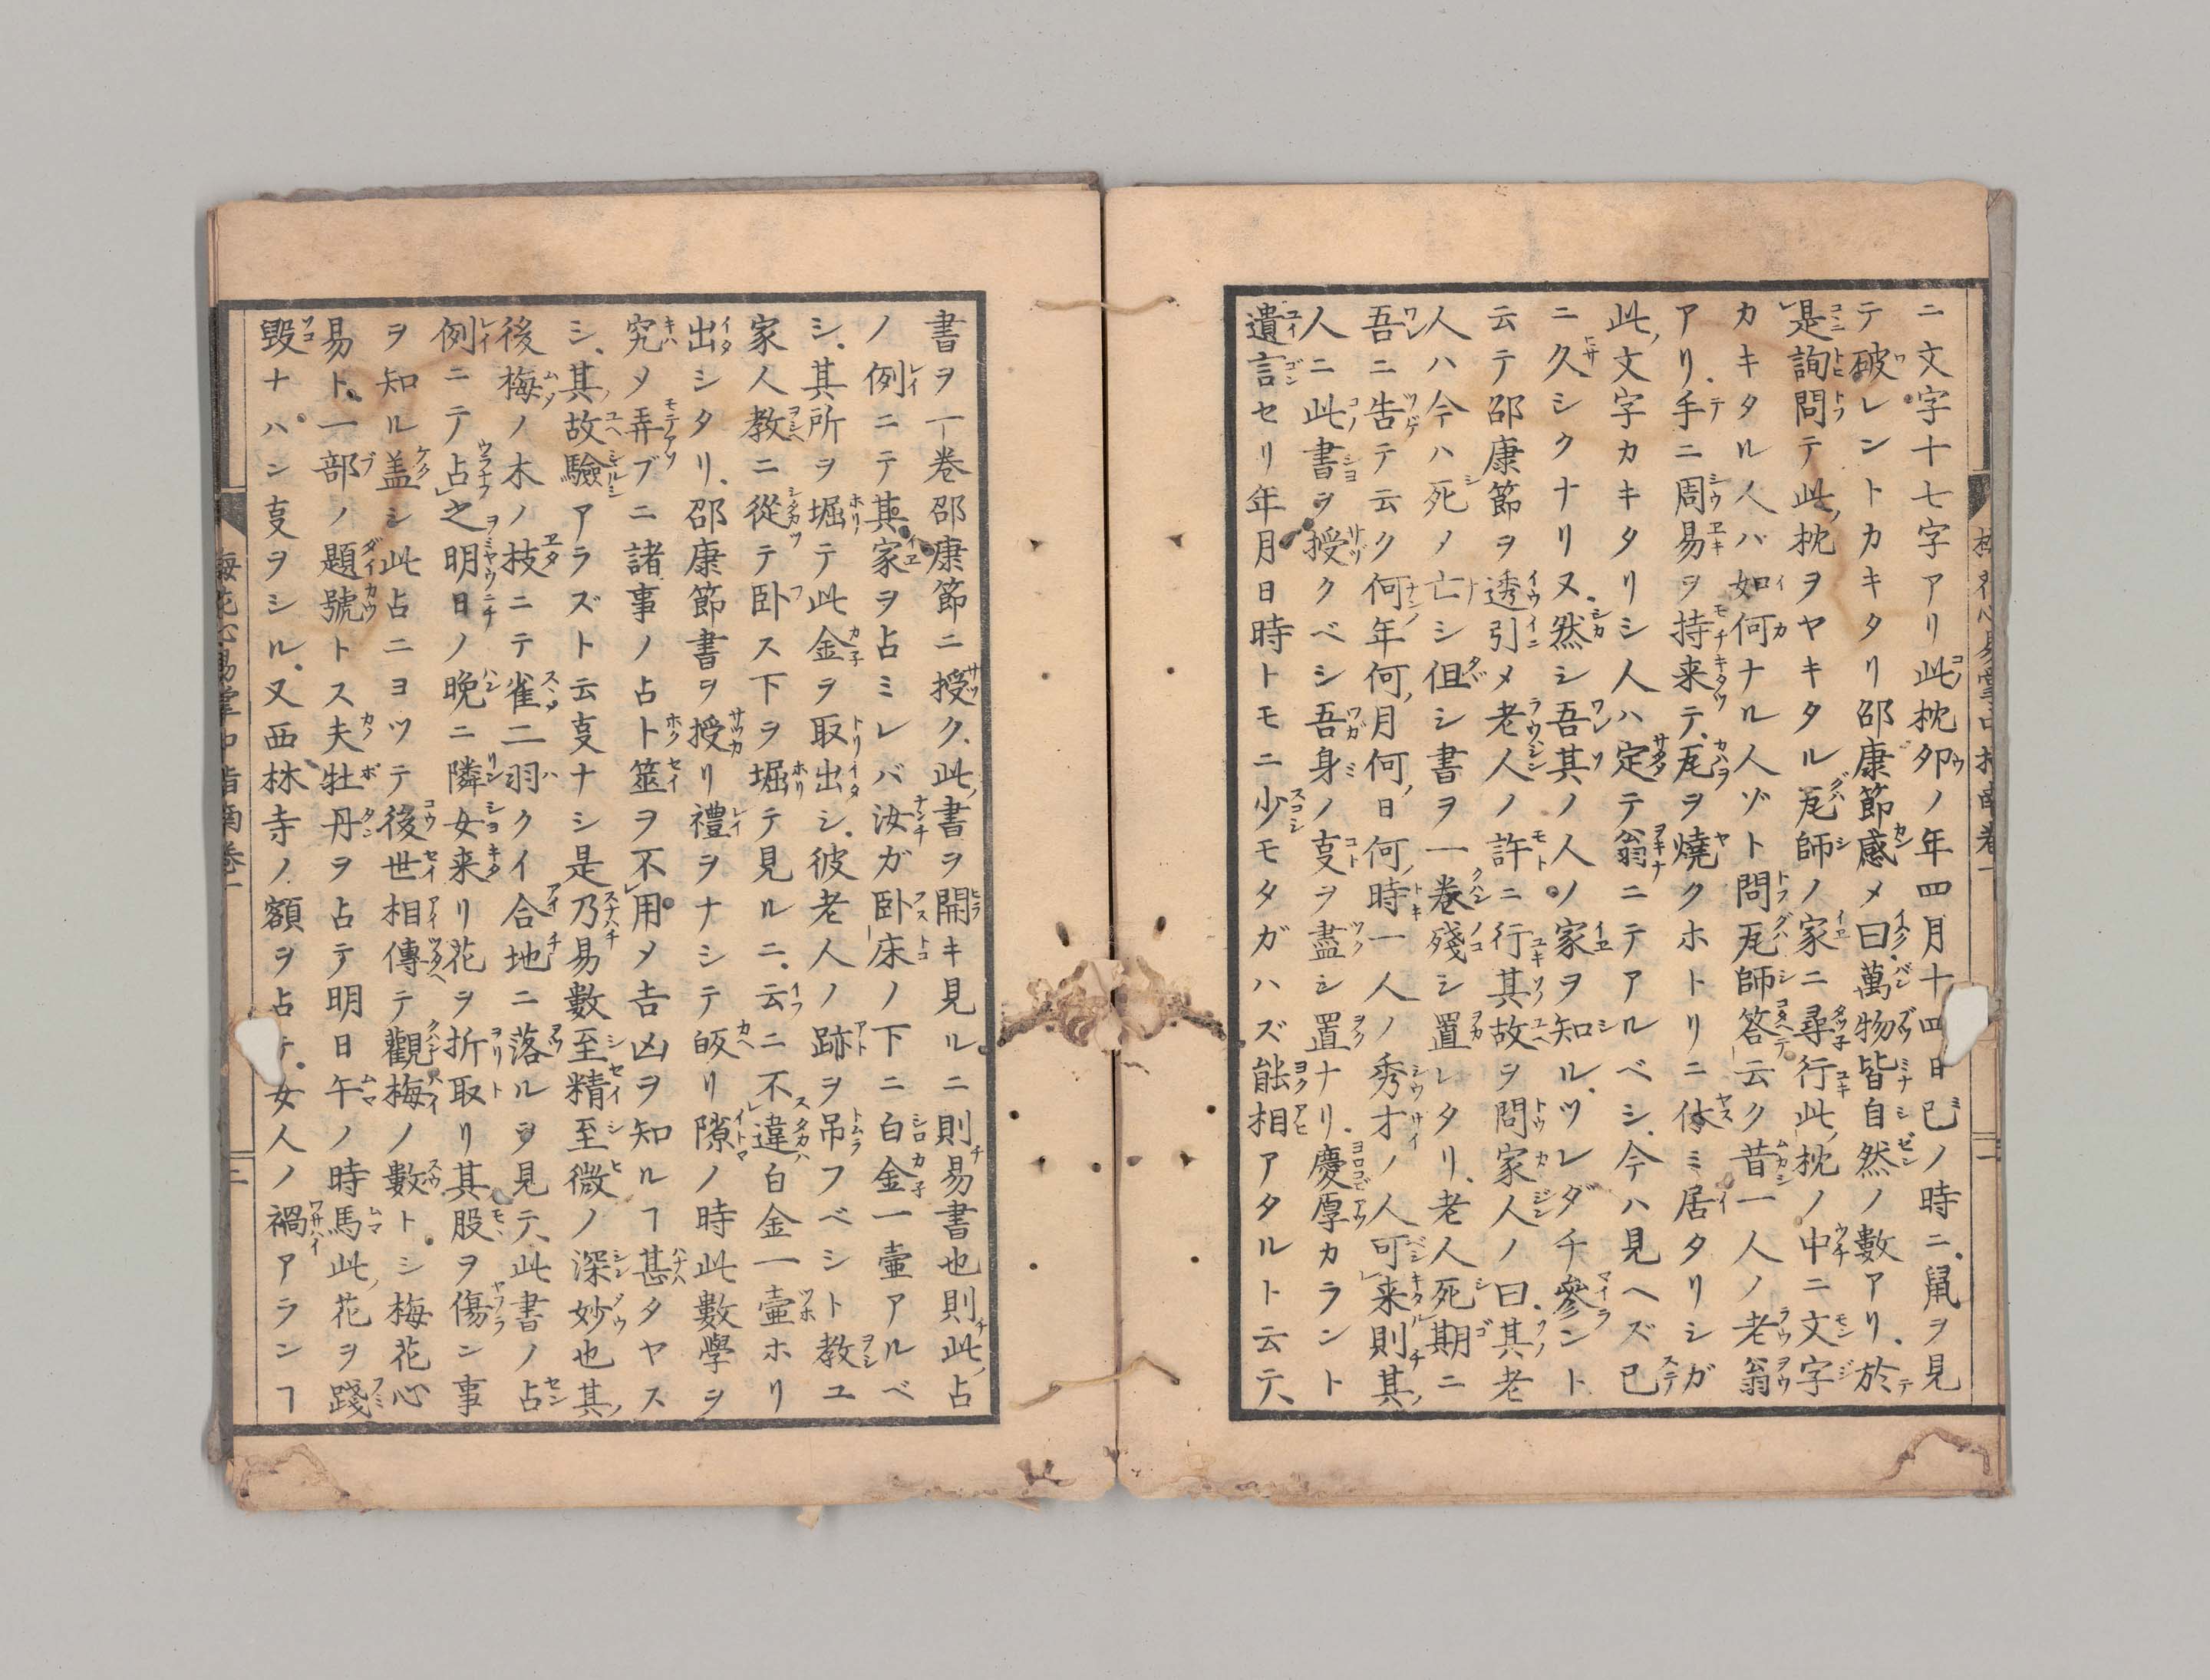 ニ文字十七字アリ此枕卯ノ年四月十四日巳ノ時ニ鼠ヲ見
テ破レントカキタリ邵康節感メ曰萬物皆自然ノ數アリ於
是詢問テ此枕ヲヤキタル瓦師ノ家ニ尋行此枕ノ中ニ文字
カキタル人バ如何ナル人ゾト問瓦師答云ク昔一人ノ老翁
アリ手ニ周易ヲ持来テ瓦ヲ燒クホトリニ休ミ居タリシガ
此文字カキタリシ人ハ定テ翁ニテアルベシ今ハ見ヘズ已
ニ久シクナリヌ然シ吾其ノ人ノ家ヲ知ルツレダチ參ント
云テ邵康節ヲ透引メ老人ノ許ニ行其故ヲ問家人ノ曰其老
人ハ今ハ死ノ亡シ但シ書ヲ一卷殘シ置レタリ老人死期ニ
吾ニ告テ云ク何年何月何日何時一人ノ秀才ノ人可来則其
人ニ此書ヲ授クベシ吾身ノ㕝ヲ盡シ置ナリ慶厚カラント
遺言セリ年月日時トモニ少モタガハズ能相アタルト云テ
書ヲ一卷邵康節ニ授ク此書ヲ開キ見ルニ則易書也則此占
ノ例ニテ其家ヲ占ミレバ汝ガ卧床ノ下ニ白金一壷アルベ
シ其所ヲ堀テ此金ヲ取出シ彼老人ノ跡ヲ吊フベシト教ユ
家人教ニ從テ卧ス下ヲ堀テ見ルニ云ニ不違白金一壷ホリ
出シタリ邵康節書ヲ授リ禮ヲナシテ皈リ隙ノ時此數學ヲ
究メ弄ブニ諸事ノ占ト筮ヲ不用メ吉凶ヲ知ルヿ甚タヤス
シ其故驗アラズト云㕝ナシ是乃易數至精至微ノ深妙也其
後梅ノ木ノ枝ニテ雀二羽クイ合地ニ落ルヲ見テ此書ノ占
例ニテ占之明日ノ晩ニ隣女来リ花ヲ折取リ其股ヲ傷ン事
ヲ知ル盖シ此占ニヨツテ後世相傳テ觀梅ノ數トシ梅花心
易ト一部ノ題號トス夫牡丹ヲ占テ明日午ノ時馬此花ヲ踐
毀ナハン㕝ヲシル又西林寺ノ額ヲ占テ女人ノ禍アランヿ
梅花心易掌中指南卷一
二